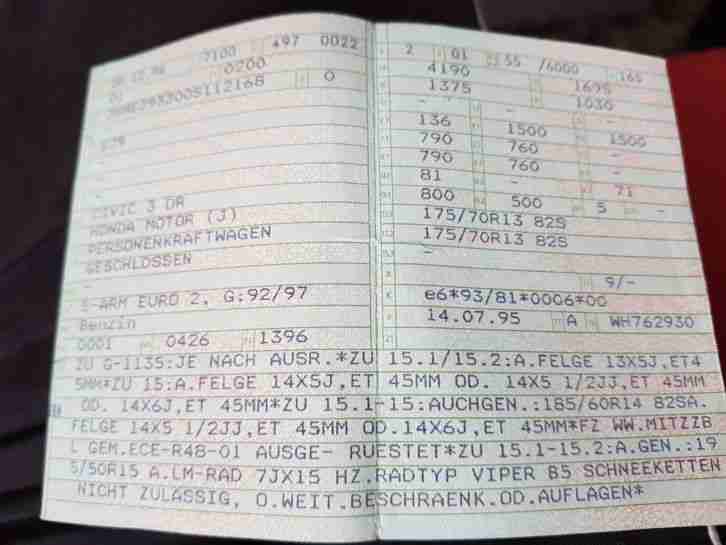 12.96 7100 497 0022
01 0200
0
EJ9
-
-
CIVIC 3 DR
HONDA MOTOR (J)
PERSONENKRAFTWAGEN
GESCHLOSSEN
-
S-ARM EURO 2, G:92/97
Benzin
0001 0426 1396
2 01 55 /6000 165
4190 1695
1375 1030
- - -
136 1500 1500
790 760 -
790 760 -
81 - 71
800 500 5 -
175/70R13 82S
175/70R13 82S
-
9/-
e6*93/81*0006*00
14.07.95 A WH762930
ZU G-1135:JE NACH AUSR.*ZU 15.1/15.2:A.FELGE 13X5J,ET4
5MM*ZU 15:A.FELGE 14X5J,ET 45MM OD. 14X5 1/2JJ,ET 45MM
OD. 14X6J,ET 45MM*ZU 15.1-15:AUCHGEN.:185/60R14 82SA.
FELGE 14X5 1/2JJ,ET 45MM OD.14X6J,ET 45MM*FZ WW.MITZZB
L GEM.ECE-R48-01 AUSGE- RUESTET*ZU 15.1-15.2:A.GEN.:19
5/50R15 A.LM-RAD 7JX15 HZ.RADTYP VIPER B5 SCHNEEKETTEN
NICHT ZULÄSSIG, O.WEIT.BESCHRAENK.OD.AUFLAGEN*